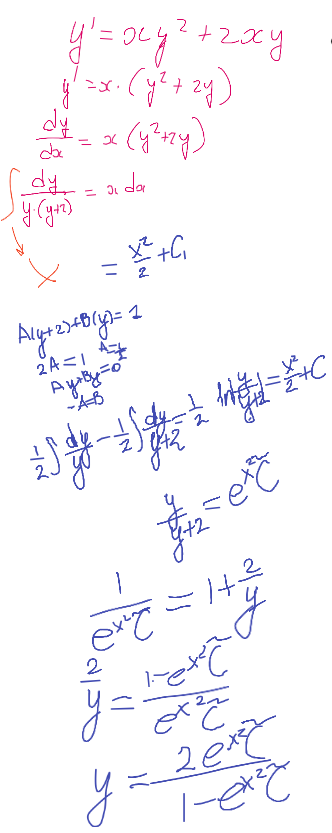 y' = xy² + 2xy
y' = x · (y² + 2y)
dy/dx = x (y² + 2y)
∫ dy/(y·(y+2)) = x dx
= x²/2 + C₁
A(y+2) + B(y) = 1
2A = 1 A = 1/2
Ay + By = 0
-A = B
1/2 ∫ dy/y - 1/2 ∫ dy/(y+2) = 1/2 ln|y/(y+2)| = x²/2 + C
y/(y+2) = e^(x²) C̃
1/(e^(x²) C̃) = 1 + 2/y
2/y = (1 - e^(x²) C̃)/(e^(x²) C̃)
y = (2e^(x²) C̃)/(1 - e^(x²) C̃)